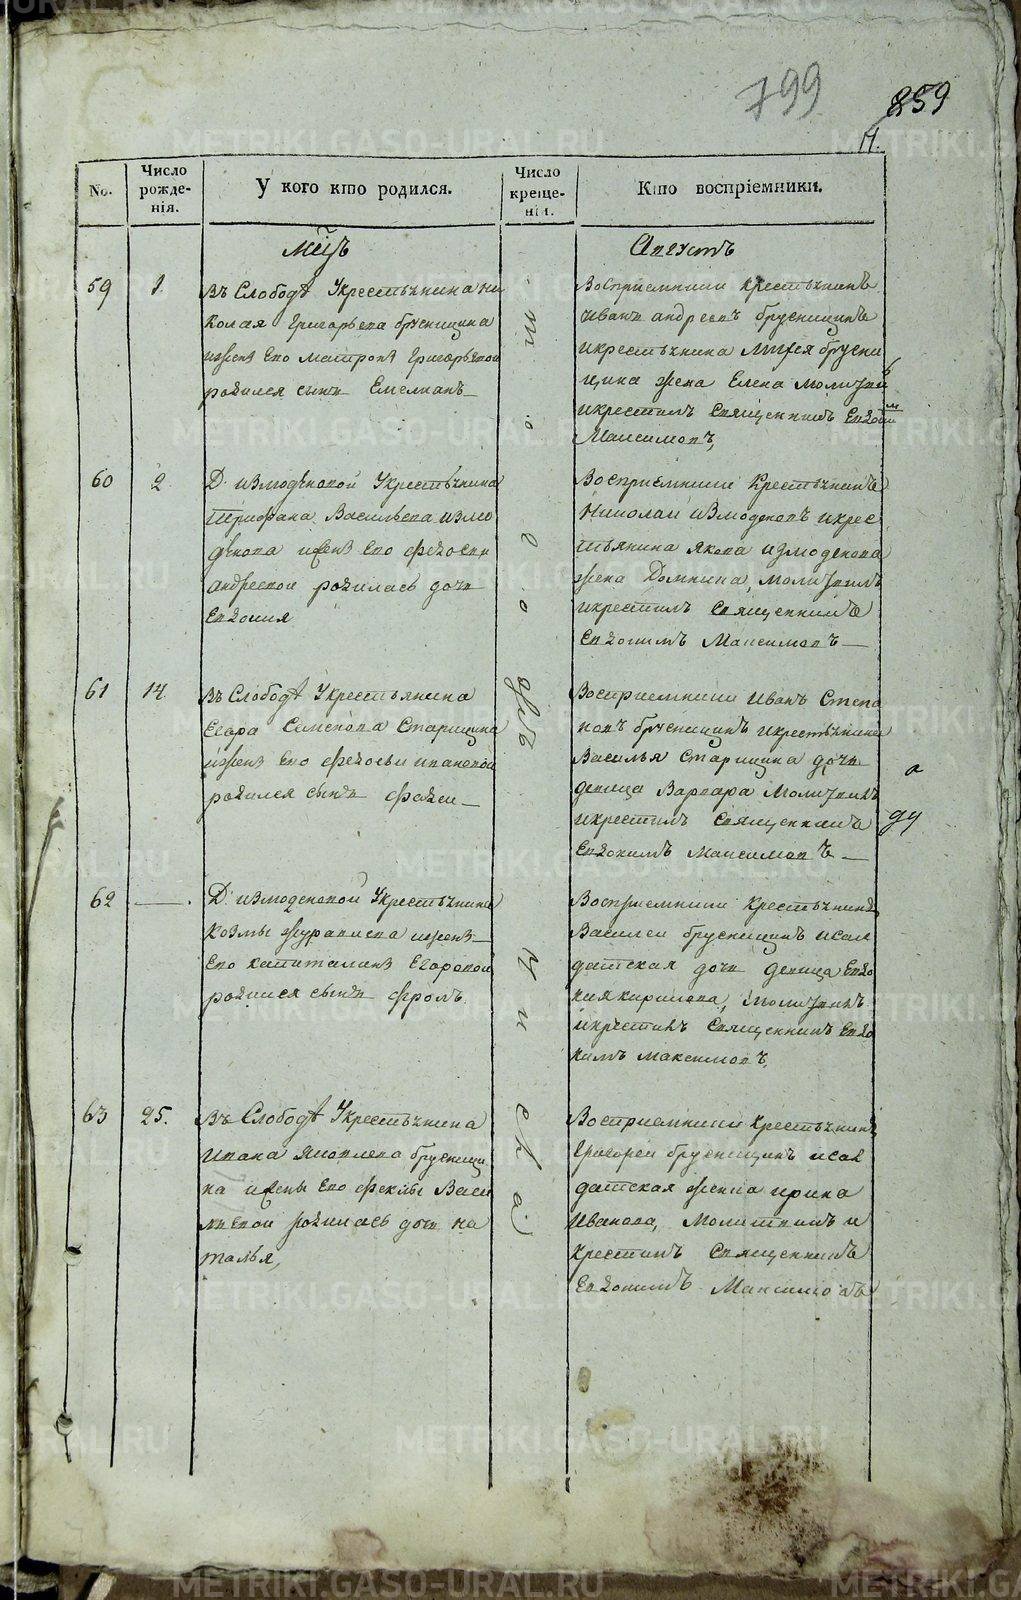 799
859
П.
No.
Число рожденія.
У кого кто родился.
Число крещенія.
Кто воспріемники.
Мцъ
Августъ
59
1
Въ Слободѣ Укрестьянина Ни
колая Григорьева брусницина
ижены Его Матроны Григорьевой
родился сынъ Емелианъ
Восприемники крестьянинъ
Иванъ андреевъ брусницинъ
икрестьянина брусни
цина жена Елена молитвил
икрестилъ Священникъ Евдоким
Максимовъ,
60
2
Д. измоденовой Укрестьянина
Трифана Васильева измо
денова ижены Его Федосьи
андреевой родилась дочь
Евдокия
Восприемники Крестьянинъ
Николай измоденовъ икрес
тьянина Якова измоденова
жена Домнина, молитвилъ
икрестилъ Священникъ
Евдокимъ Максимовъ
61
14
Въ Слободѣ Укрестьянина
Егора Семенова Старицина
ижены Его Федосьи ивановой
родился сынъ Фадеи
Восприемники Иванъ Степа
новъ брусницинъ икрестьянина
Василья Старицина дочь
девица Варвара Молитвилъ
икрестилъ Священникъ
Евдокимъ Максимовъ
62
Д. измоденовой Укрестьянина
Козмы журавлева ижены
Его капиталины Егоровой
родился сынъ Фролъ
Восприемники Крестьянинъ
Василеи брусницинъ исол
датская дочь девица Евдо
кия кирилова, молитвилъ
икрестилъ Священникъ Евдо
кимъ Максимовъ,
63
25.
Въ Слободѣ Укрестьянина
Ивана Яковлева брусници
на ижены Его Феклы Васи
льевой родилась дочь На
талья,
Восприемники Крестьянинъ
Григореи брусницинъ исол
датская жена ирина
Иванова, Молитвилъ и
Крестилъ Священникъ
Евдокимъ Максимовъ
того жъ числа
METRIKI.GASO-URAL.RU